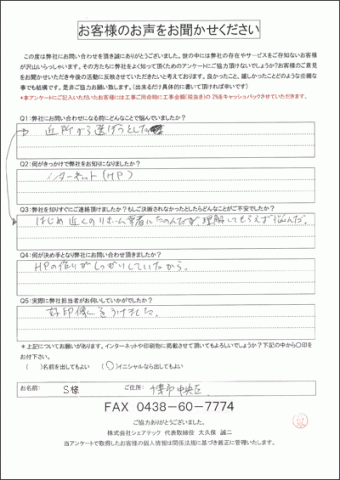 お客様のお声をお聞かせください
この度は弊社にお問い合わせを頂き誠にありがとうございました。世の中には弊社の存在やサービスをご存知ないお客様
が沢山いらっしゃいます。その方たちに弊社をよく知って頂くためのアンケートにご協力頂けないでしょうか？お客様のご意見
をお聞かせいただき今後の活動に反映させていただきたいと考えております。良かったこと、嬉しかったことどのような些細な
事でも結構です。是非ご協力お願い致します。（出来るだけ具体的に書いて頂ければ幸いです）
Q1：弊社にお問い合わせになる前にどんなことで悩んでいましたか？
近所から選ぼうとした
Q2：何がきっかけで弊社をお知りになりましたか？
インターネット（HP）
Q3：弊社を知りすぐにご連絡頂けましたか？もしご決断されなかったとしたらどんなことがご不安でしたか？
はじめ近くのリホーム業者にたのんだが、理解してもらえず悩んだ。
Q4：何が決め手となり弊社にお問い合わせ頂けましたか？
HPの作りがしっかりしていたから。
Q5：実際に弊社担当者がお伺いしていかがでしたか？
好印象をうけました。
＊上記についてお願いがあります。インターネットや印刷物に掲載させて頂いてもよろしいでしょうか？下記の中から〇印を
お付下さい。
（　）名前を出してもよい　（〇）イニシャルなら出してもよい
お名前： S様　ご住所： 千葉市中央区
FAX 0438-60-7774
ご協力ありがとうございました。
株式会社シェアテック 代表取締役 大久保 誠二
当アンケートで取得したお客様の個人情報は関係法規に基づき厳正に管理いたします。